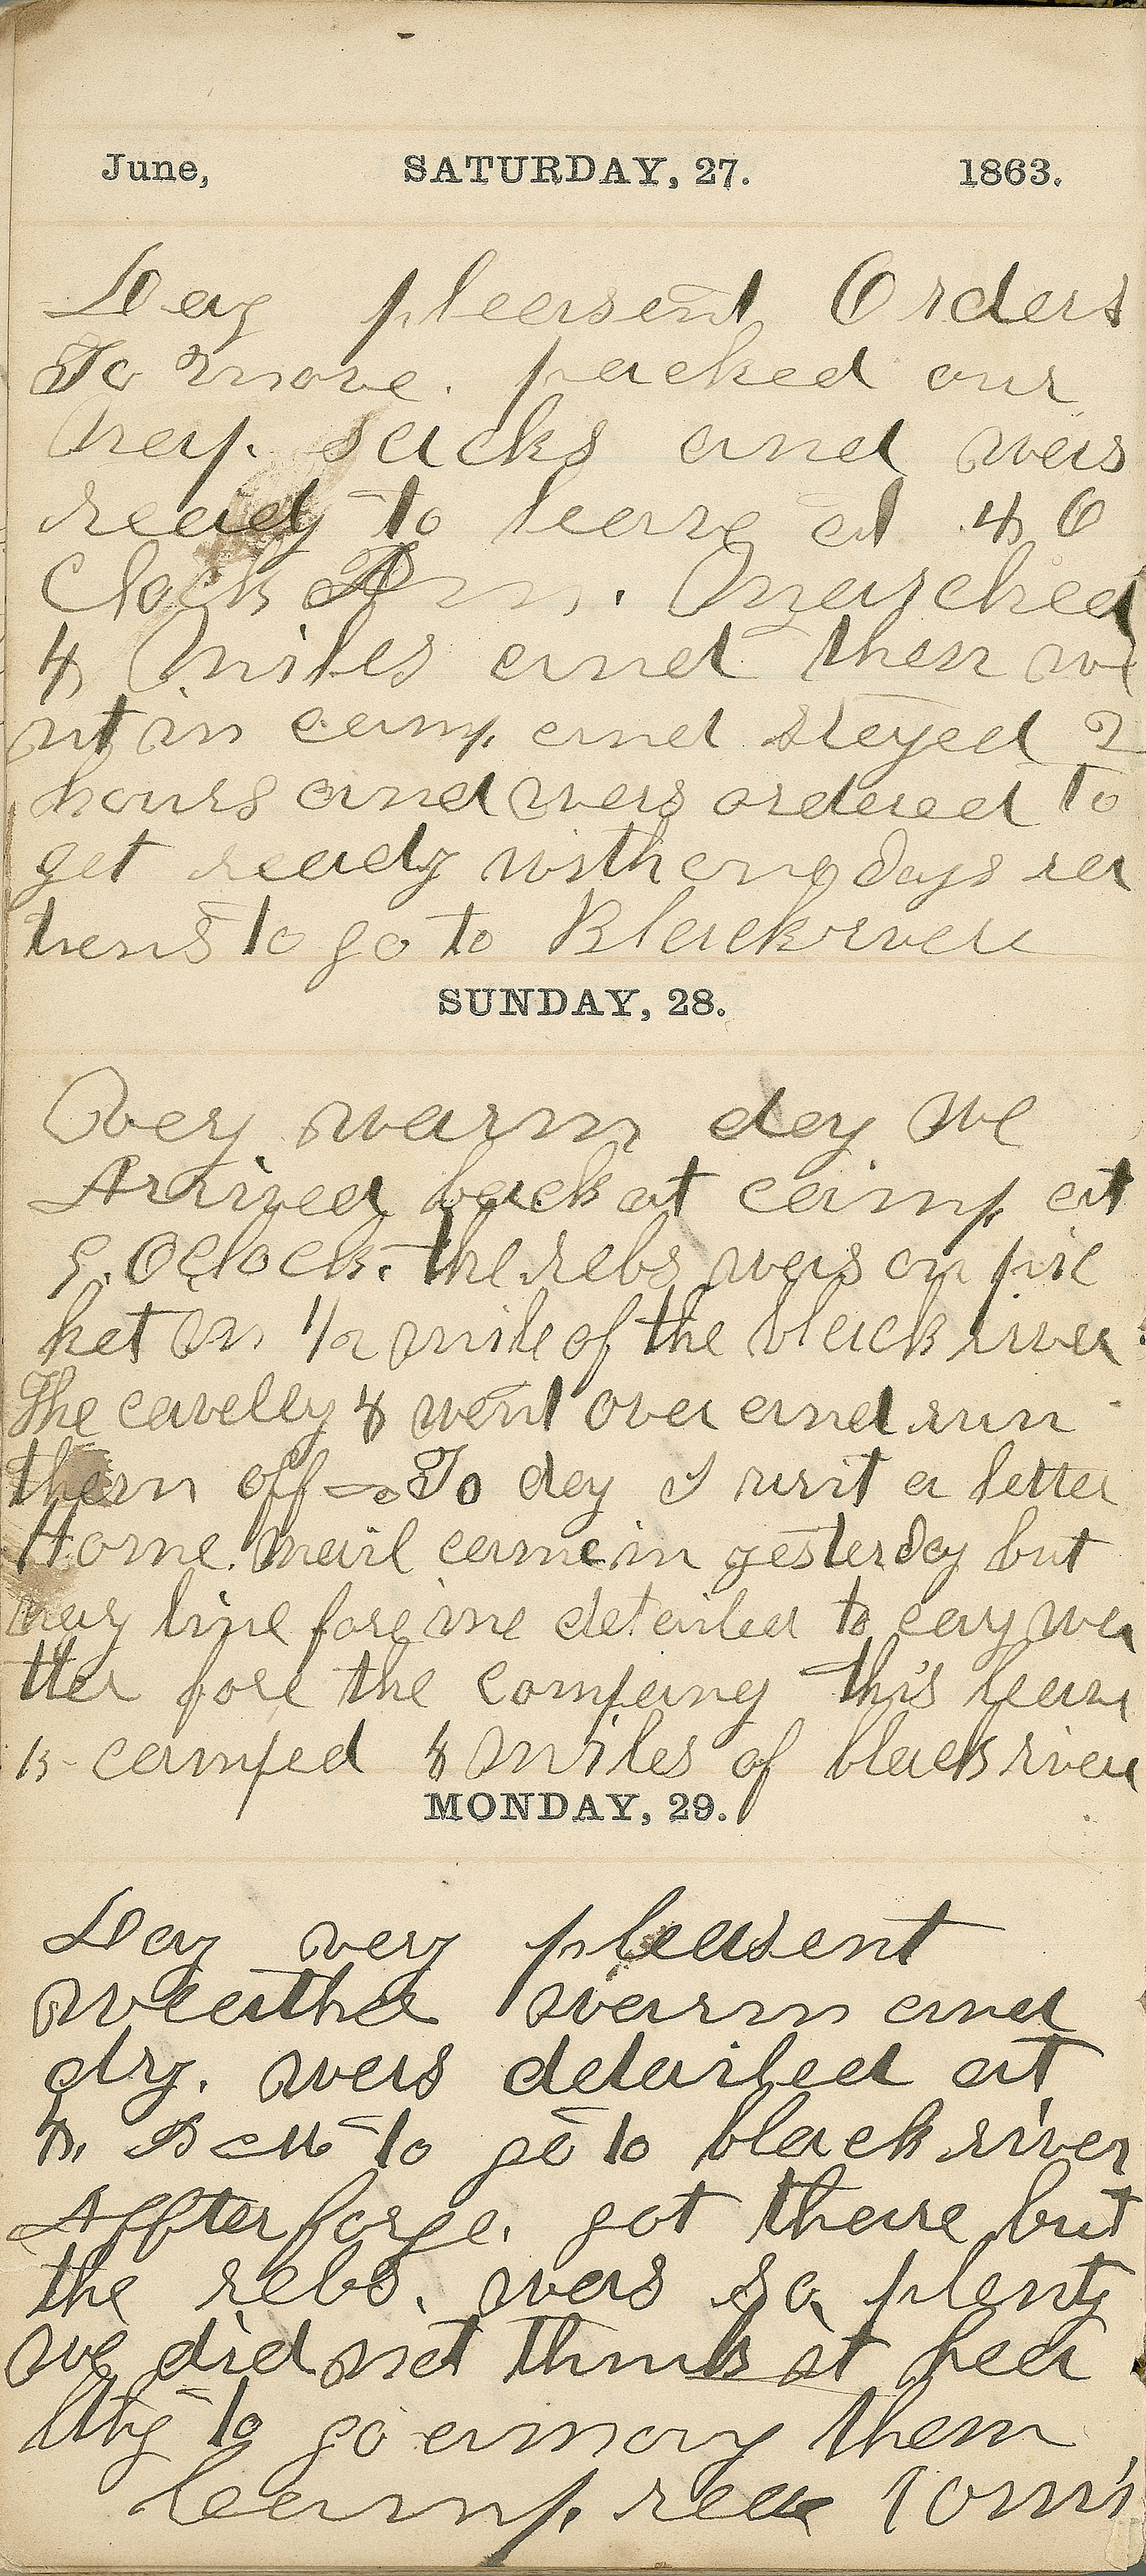 June, SATURDAY, 27. 1863.
Day pleasent Orders
To move. packed our
nap. sacks and was
ready to leave at 4 O
Clock Am. Marched
4 Miles and then we
nt in camp and stayed 2
hours and was ordered to
get ready with one days ra
tiens to go to Blackriveu
SUNDAY, 28.
Very warm day We
Arived back at camp at
5. Oclock. the rebs was on pic
ket in 1/2 mile of the black river
The cavelly & went over and run
them off - To day I writ a letter
Home. Mail came in yesterday but
nary line fore me detailed to cay wa
tter fore the company this
is camped 8 Miles of black river
MONDAY, 29.
Day very pleasent
weather warm and
dry. was detailed at
to go to black river
Affter forge. got theire but
the rebs. was so plenty
we did not think it hea
lthy to go among them